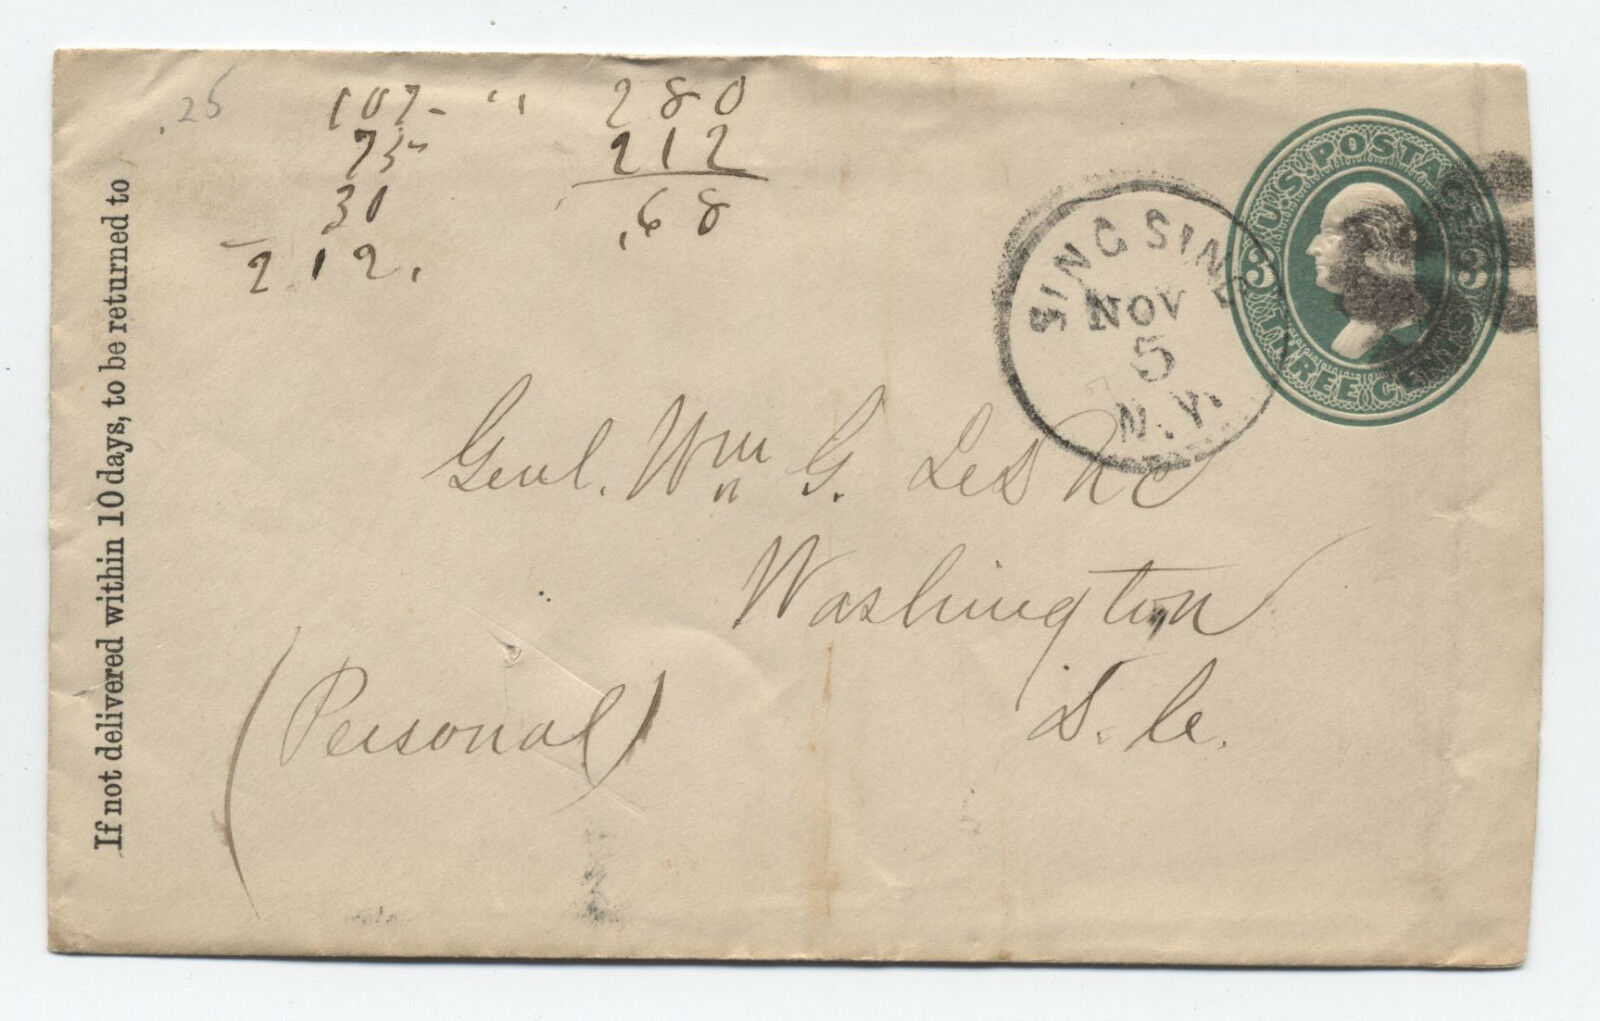 .25
107- " 280
75 212
30 .68
212.
If not delivered within 10 days, to be returned to
U.S. POSTAGE
3 3
THREE CENTS
SING SING
NOV
5
N.Y.
Genl. Wm G. LeDuc
Washington
D. C.
(Personal)